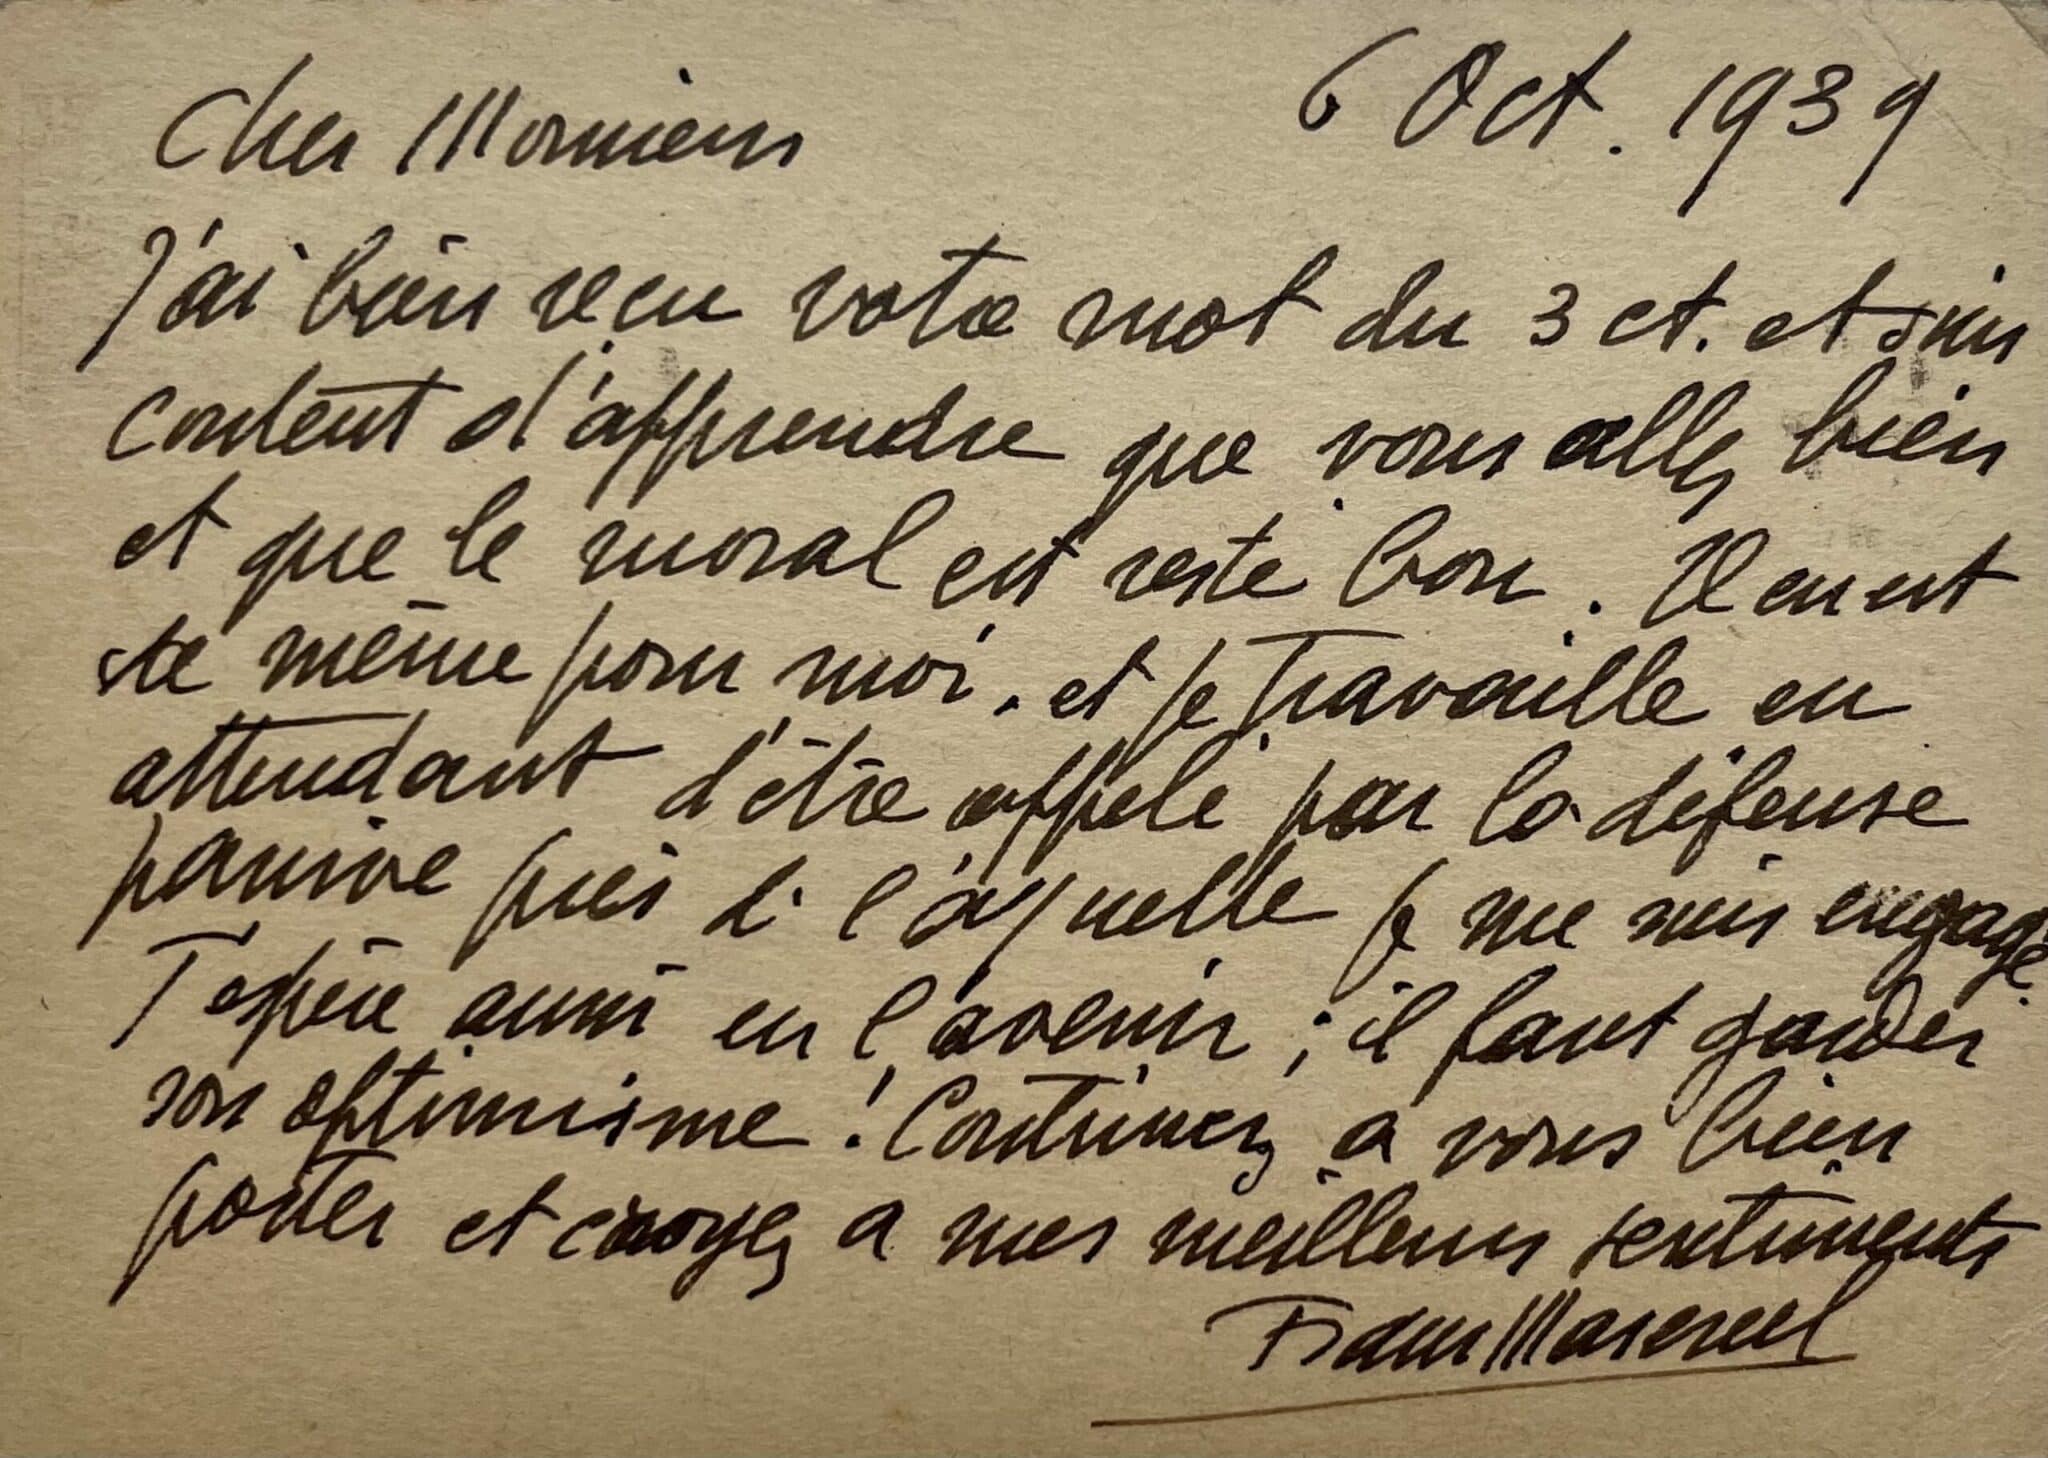 Cher Monsieur
6 Oct. 1939
J'ai bien reçu votre mot du 3 ct. et suis
content d'apprendre que vous allez bien
et que le moral est resté bon. Il en est
de même pour moi. et je travaille en
attendant d'être appelé par la défense
passive près de l'aquelle je me suis engagé.
J'espère aussi en l'avenir ; il faut garder
son optimisme ! Continuez à vous bien
porter et croyez à mes meilleurs sentiments
Frans Masereel